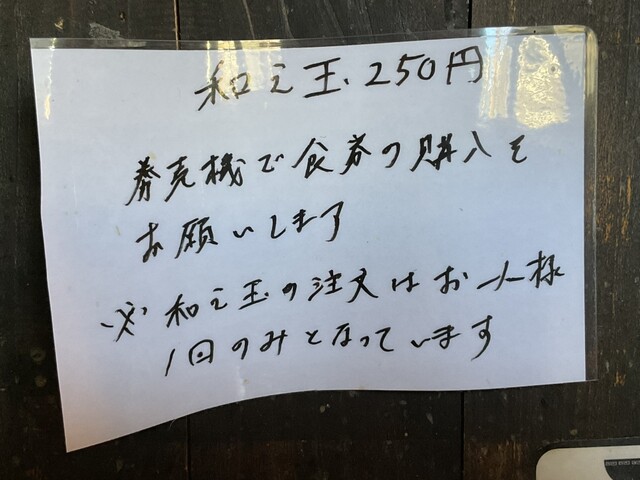 和え玉 250円
券売機で食券の購入を
お願いします
※ 和え玉の注文はお一人様
1回のみとなっています